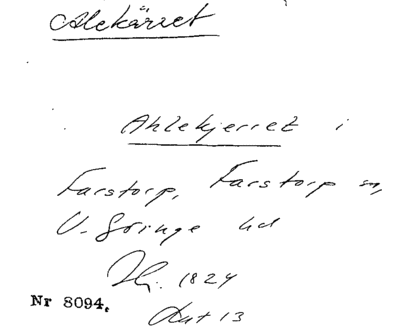 Alekärret
Ahlekjerret i
Farstorp, Farstorp sn,
V. Göinge hd
1824
Nr 8094,
Akt 13